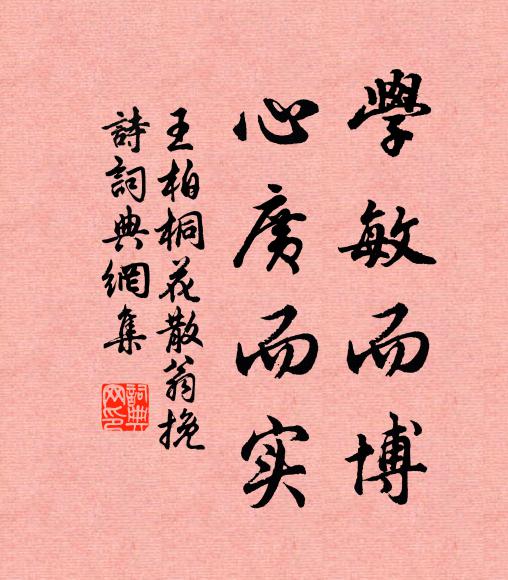 學敏而博
心廣而实
王柏桐花散翁挽
詩詞典網集
詞典網印